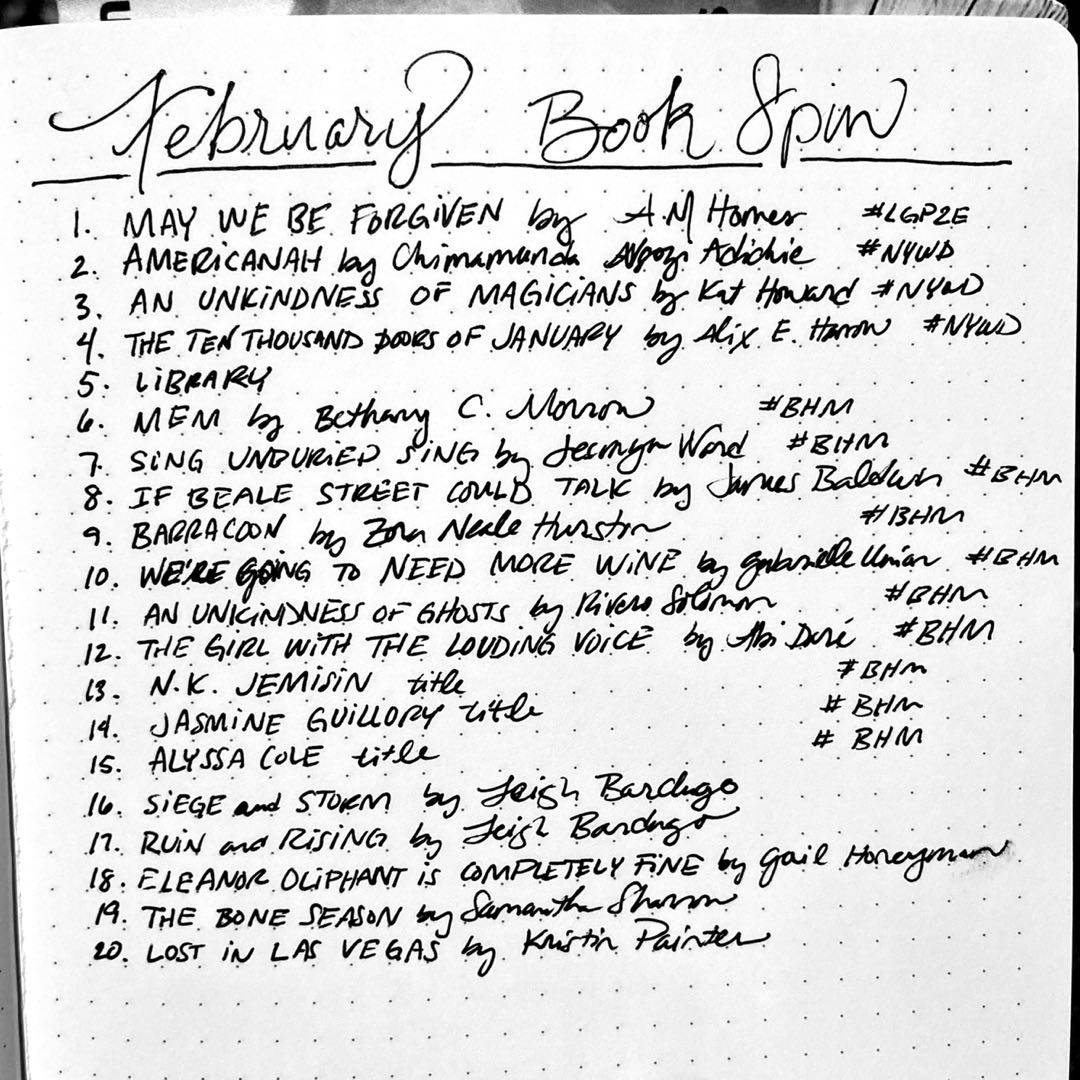 February Book Spin
1. MAY WE BE FORGIVEN by A.M Homes #LGP2E
2. AMERICANAH by Chimamanda Ngozi Adichie #NYWD
3. AN UNKINDNESS OF MAGICIANS by Kat Howard #NYWD
4. THE TEN THOUSAND DOORS OF JANUARY by Alix E. Harrow #NYWD
5. LIBRARY
6. MEM by Bethany C. Morrow #BHM
7. SING UNBURIED SING by Jesmyn Ward #BHM
8. IF BEALE STREET COULD TALK by James Baldwin #BHM
9. BARRACOON by Zora Neale Hurston #BHM
10. WE'RE GOING TO NEED MORE WINE by Gabrielle Union #BHM
11. AN UNKINDNESS OF GHOSTS by Rivers Solomon #BHM
12. THE GIRL WITH THE LOUDING VOICE by Abi Daré #BHM
13. N.K. JEMISIN title #BHM
14. JASMINE GUILLORY title #BHM
15. ALYSSA COLE title # BHM
16. SIEGE and STORM by Leigh Bardugo
17. RUIN and RISING by Leigh Bardugo
18. ELEANOR OLIPHANT IS COMPLETELY FINE by Gail Honeyman
19. THE BONE SEASON by Samantha Shannon
20. LOST IN LAS VEGAS by Kristin Painter